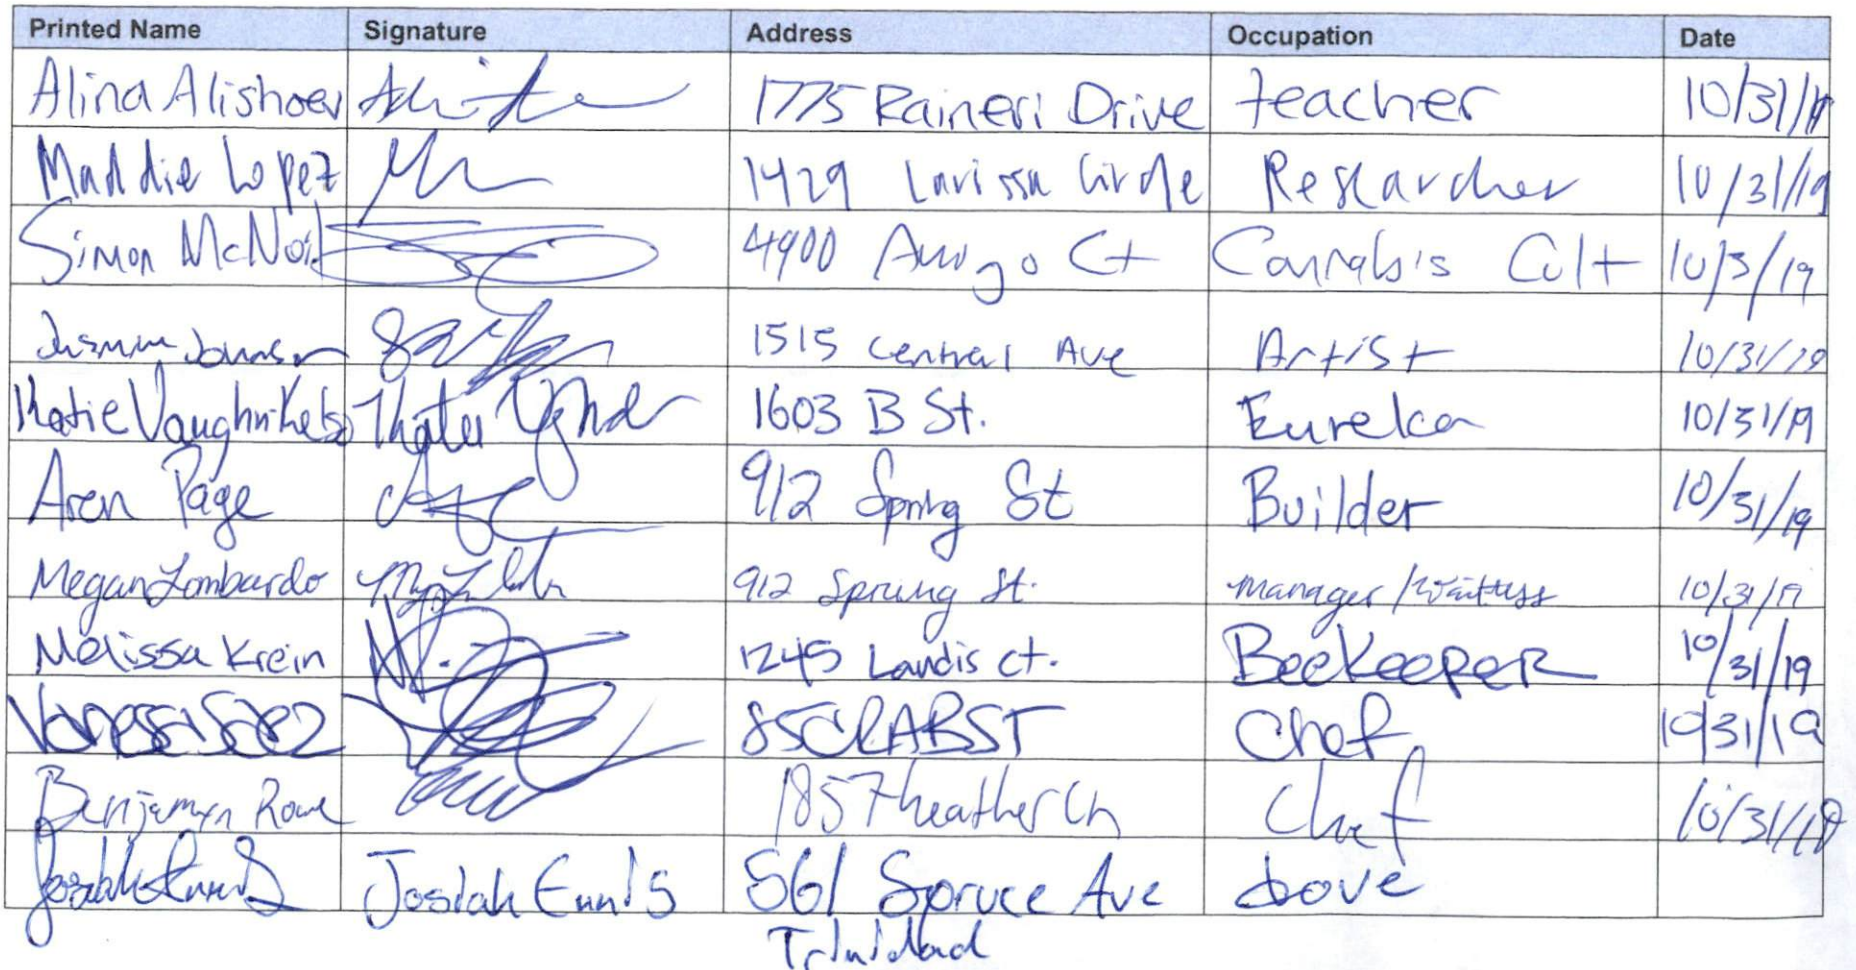 Printed Name Signature Address Occupation Date
Alina Alishoev 1775 Raineri Drive teacher 10/31/19
Maddie Lopez 1429 Larissa Circle Researcher 10/31/19
Simon McNeil 4900 Ct Cannabis Cult 10/3/19
Jasmine Johnson 1515 central Ave Artist 10/31/19
Katie Vaughn-Kelso 1603 B St. Eureka 10/31/19
Aren Page 912 Spring St Builder 10/31/19
Megan Lombardo 912 Spring St. Manager/Waitress 10/31/19
Melissa Krein 1245 Landis ct. BeeKeeper 10/31/19
Vanessa 85 CRAB ST Chef 10/31/19
Benjamin Rowe 1857 heather Ln Chef 10/31/19
Josiah Ennis Josiah Ennis 561 Spruce Ave dove
Trinidad